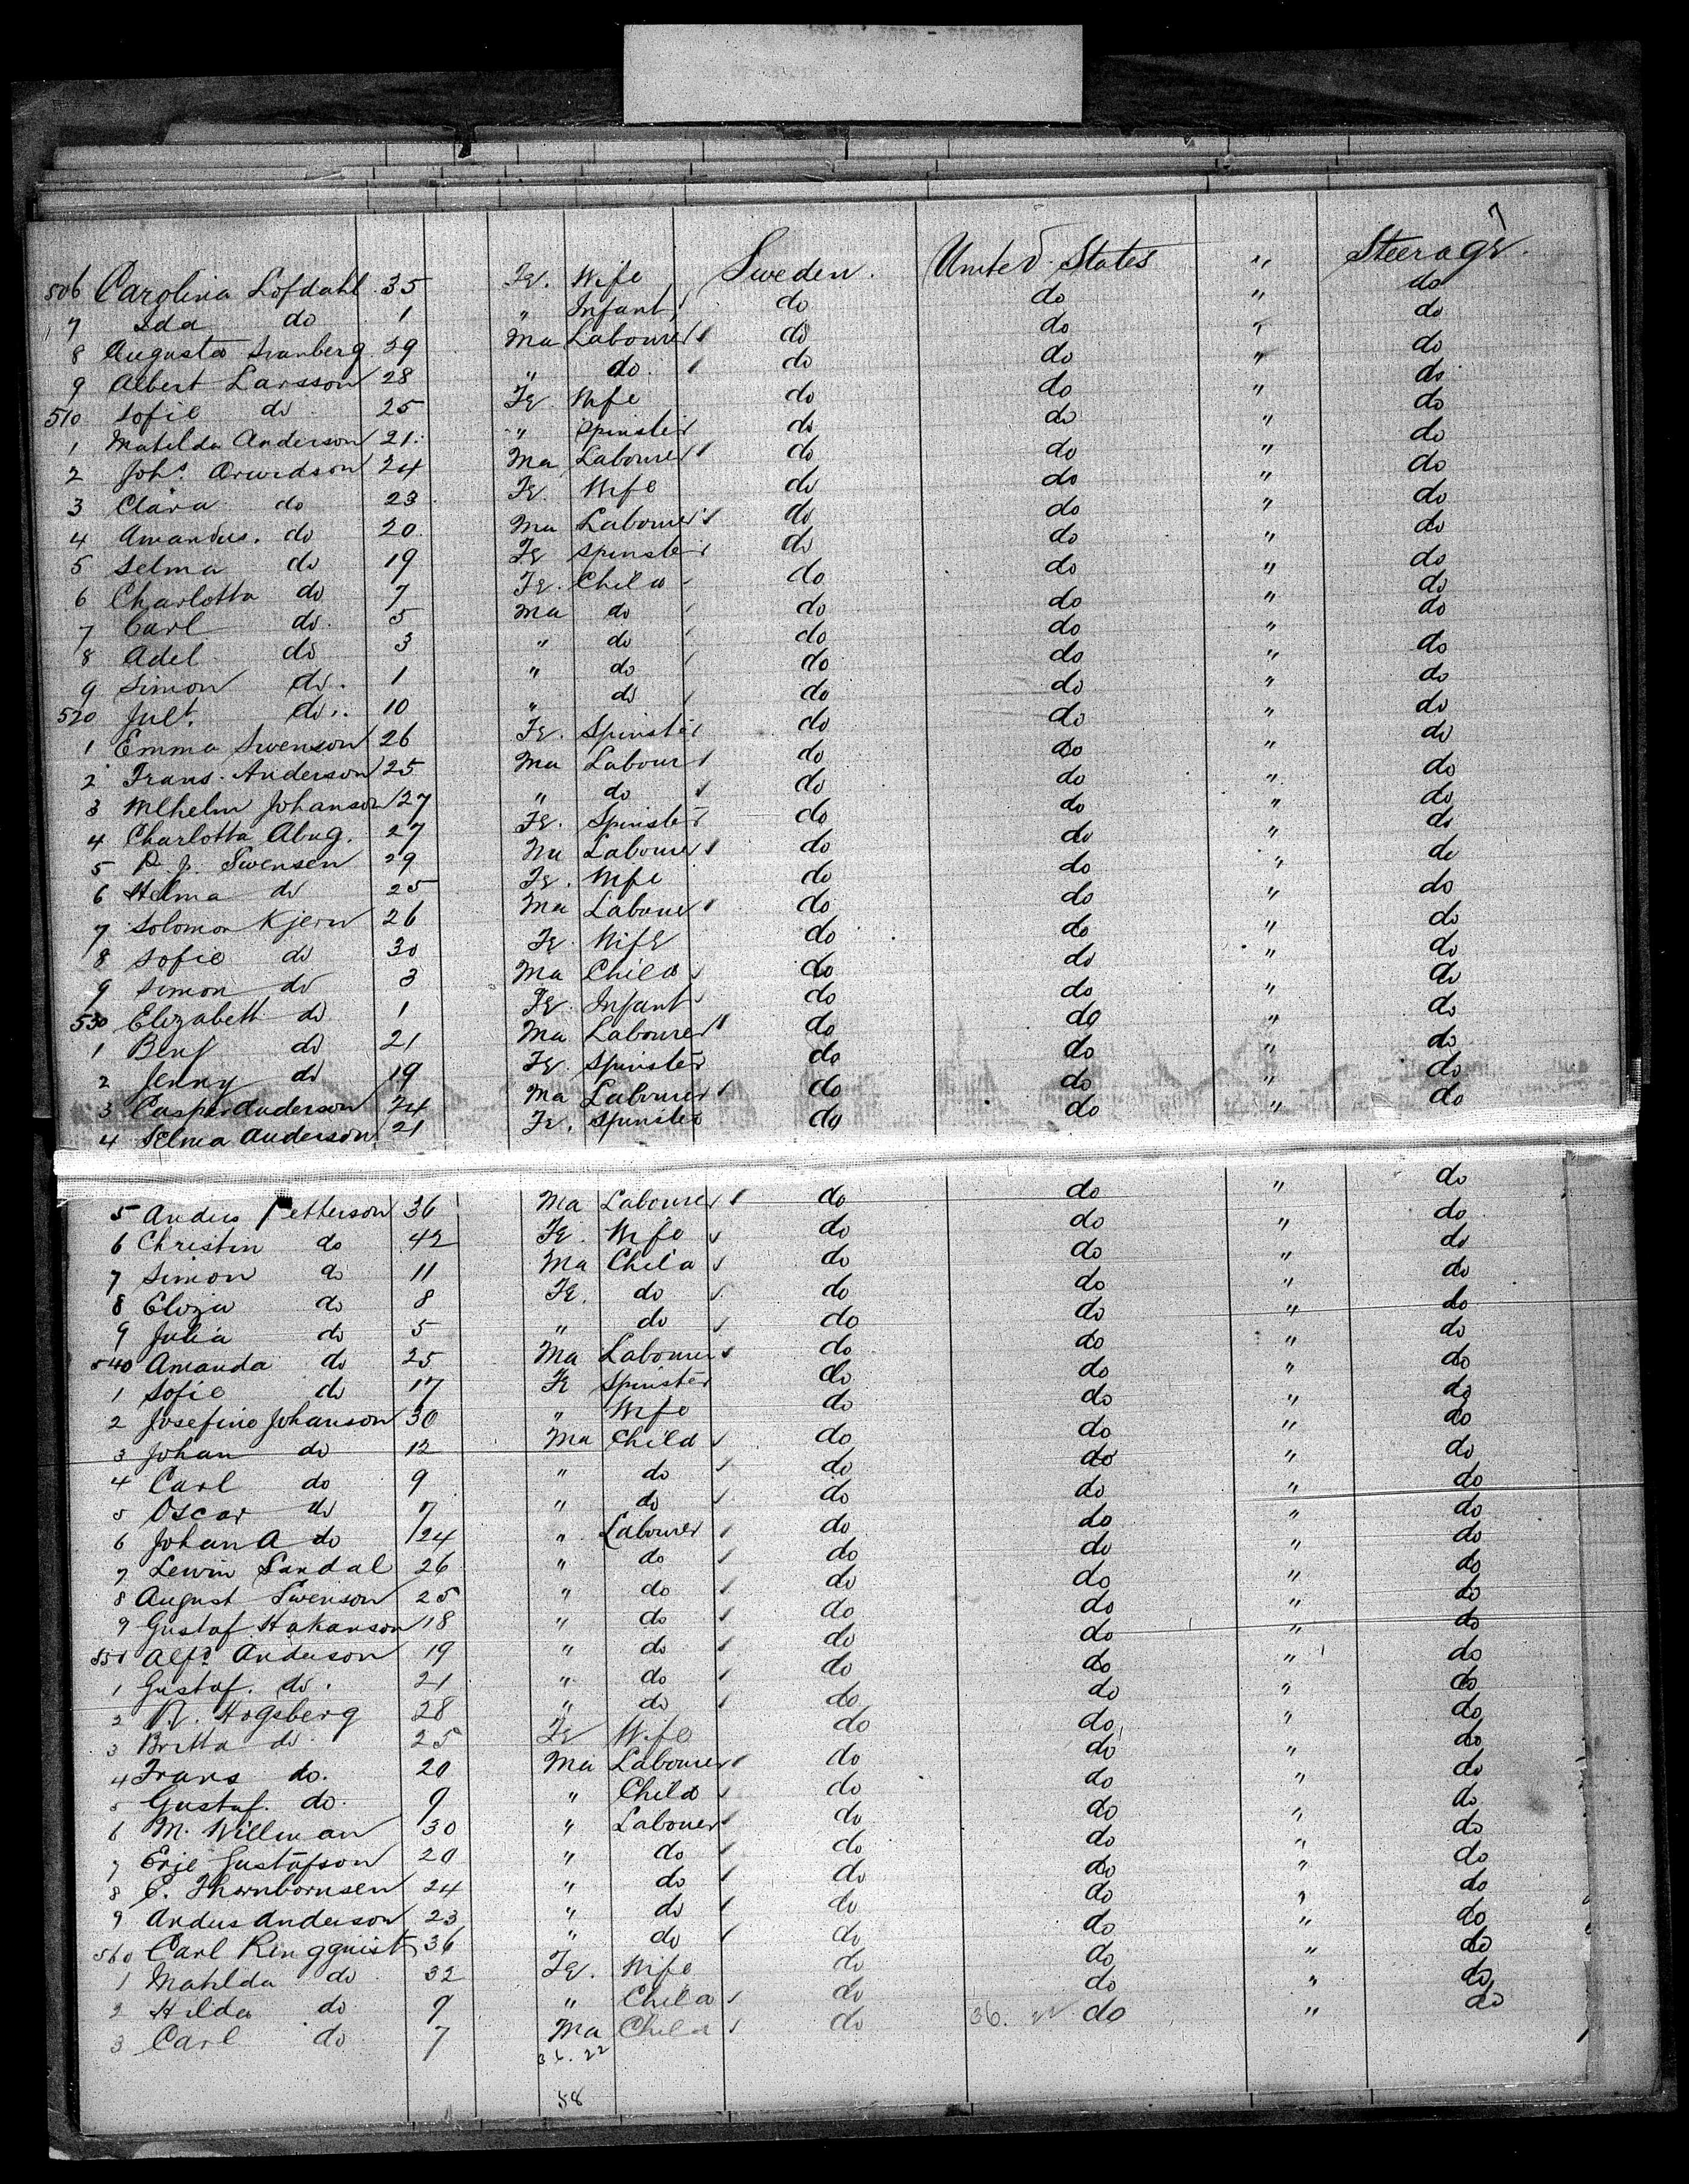 7
506 Carolina Lofdahl 35 Fe. Wife Sweden. United States " Steerage.
7 Ida do 1 " Infant do do " do
8 Augusta Svanberg 29 Ma Labourer do do " do
9 Albert Larsson 28 " do do do " do
510 Sofie do 25 Fe. Wife do do " do
1 Matilda Anderson 21 " Spinster do do " do
2 Johs. Arwidson 24 Ma Labourer do do " do
3 Clara do 23 Fe. Wife do do " do
4 Amandus. do 20 Ma Labourer do do " do
5 Selma do 19 Fe Spinster do do " do
6 Charlotta do 7 Fe. Child do do " do
7 Carl do. 5 Ma do do do " do
8 Adel do 3 " do do do " do
9 Simon do. 1 " do do do " do
520 Jult. do. 10 " do do do " do
1 Emma Swenson 26 Fe. Spinster do do " do
2 Frans. Anderson 25 Ma Labour do do " do
3 Wilhelm Johanson 27 " do do do " do
4 Charlotta Abug. 27 Fe. Spinster do do " do
5 P. J. Swensen 29 Ma Labourer do do " do
6 Helma do 25 Fe. Wife do do " do
7 Solomon Kjern 26 Ma Labourer do do " do
8 Sofie do 30 Fe. Wife do do " do
9 Simon do 3 Ma Child do do " do
530 Elizabeth do 1 Fe. Infant do do " do
1 Benj do 21 Ma Labourer do do " do
2 Jenny do 19 Fe. Spinster do do " do
3 Casper Anderson 24 Ma Labourer do do " do
4 Selma Anderson 21 Fe. Spinster do do " do
5 Anders Petterson 36 Ma Labourer do do " do
6 Christin do 42 Fe. Wife do do " do
7 Simon do 11 Ma Child do do " do
8 Eliza do 8 Fe. do do do " do
9 Julia do 5 " do do do " do
540 Amanda do 25 Ma Labourer do do " do
1 Sofie do 17 Fe Spinster do do " do
2 Josefine Johanson 30 " Wife do do " do
3 Johan do 12 Ma Child do do " do
4 Carl do 9 " do do do " do
5 Oscar do 7 " do do do " do
6 Johan A do 24 " Labourer do do " do
7 Lewin Sandal 26 " do do do " do
8 August Swenson 25 " do do do " do
9 Gustaf Hakanson 18 " do do do " do
550 Alfd. Anderson 19 " do do do " do
1 Gustaf. do. 21 " do do do " do
2 N. Hogsberg 28 " do do do " do
3 Britta do 25 Fe Wife do do " do
4 Frans do. 20 Ma Labourer do do " do
5 Gustaf. do. 9 " Child do do " do
6 M. Willman 30 " Labourer do do " do
7 Eric Gustafson 20 " do do do " do
8 C. Thornbornsen 24 " do do do " do
9 Andus Anderson 23 " do do do " do
560 Carl Ringquist 36 " do do do " do
1 Matilda do 32 Fe. Wife do do " do
2 Hilda do 9 " Child do do " do
3 Carl do 7 Ma Child do 36. 22 do " do
36. 22
58